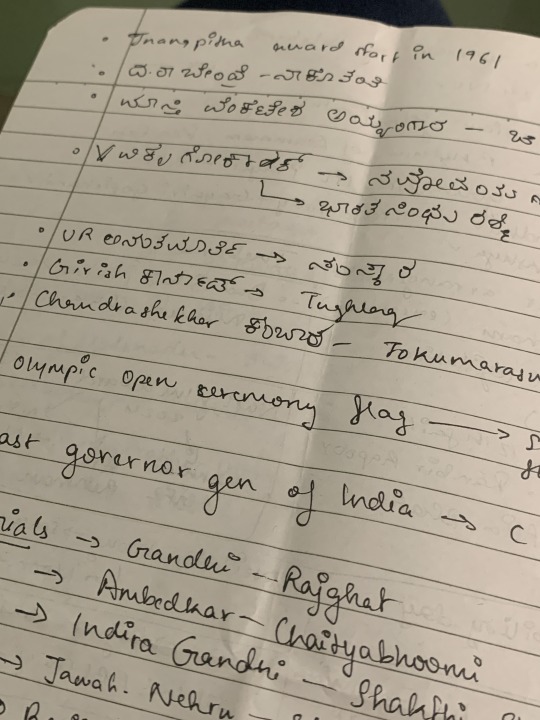 • Jnanapitha award start in 1961
• ದ.ರಾ ಬೇಂದ್ರೆ - ನಾಕುತಂತಿ
• ಮಾಸ್ತಿ ವೆಂಕಟೇಶ ಅಯ್ಯಂಗಾರ -
• V ಗೋಕಾಕ್ →
↳ ಭಾರತ ಸಿಂಧು ರಶ್ಮಿ
• UR ಅನಂತಮೂರ್ತಿ → ಸಂಸ್ಕಾರ
• Girish ಕಾರ್ನಾಡ್ → Tughlaq
• Chandrashekhar ಕಂಬಾರ -
Olympic open ceremony flag →
governor gen of India → C
→ Gandhi - Rajghat
→ Ambedkar - Chaityabhoomi
→ Indira Gandhi - Shakthi
→ Jawah. Nehru -